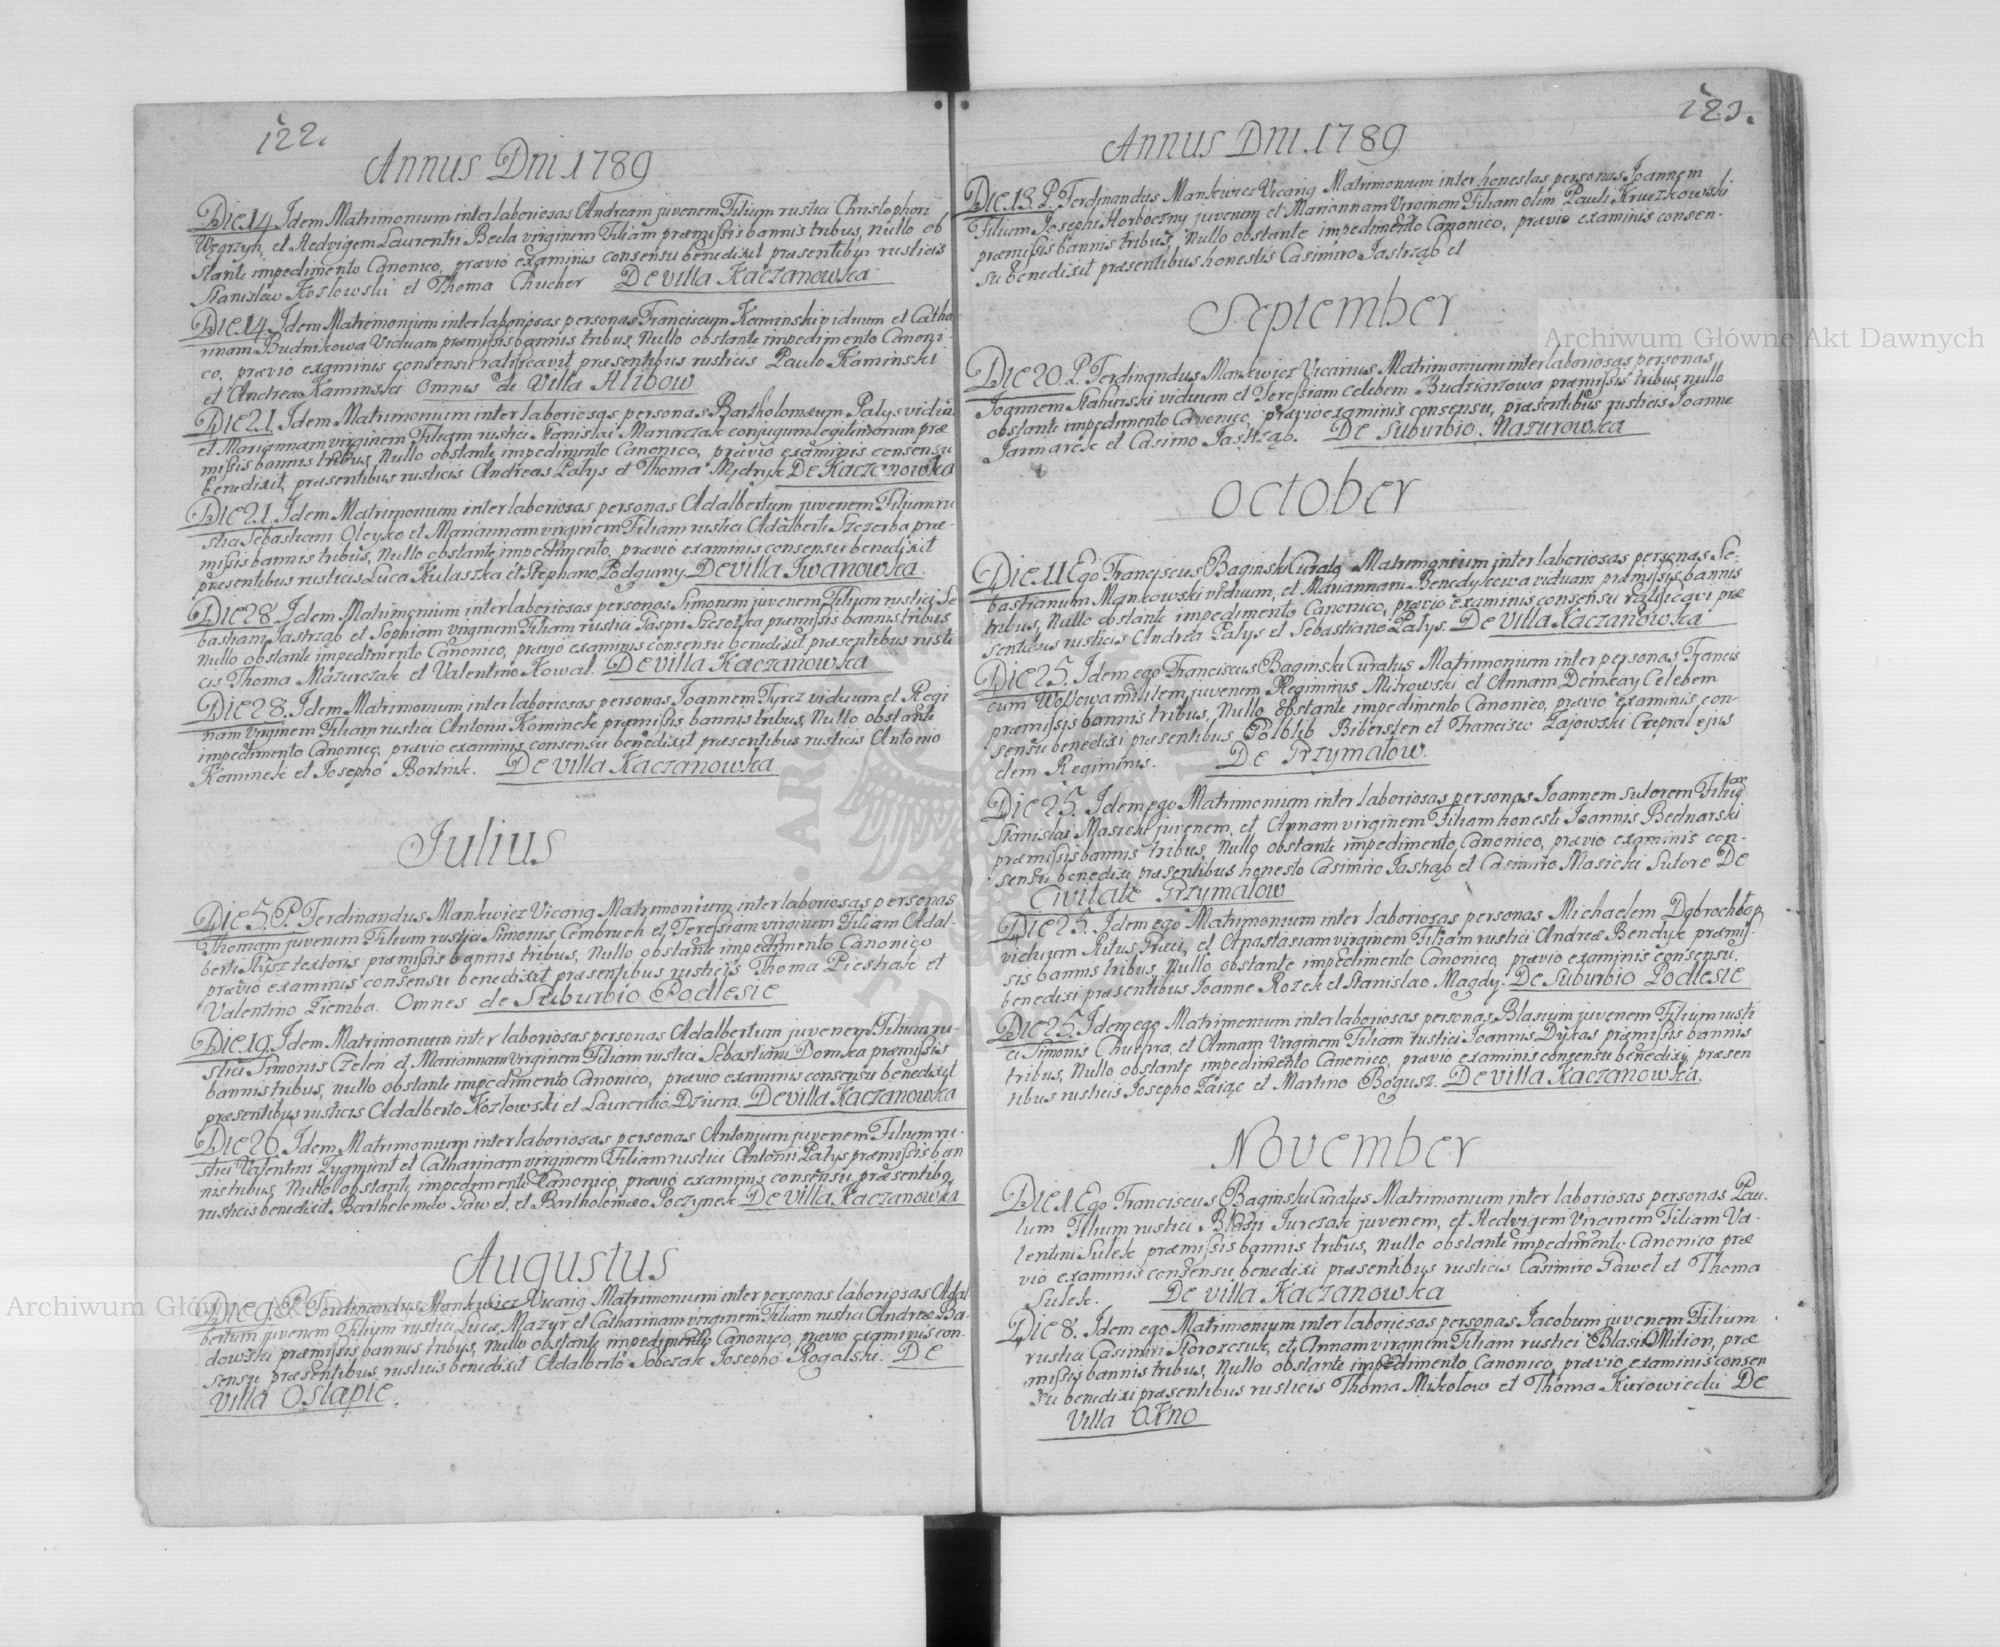 122.
Annus Dni 1789
Die 14. Idem Matrimonium inter laboriosas Andream juvenem Filium rustici Christophori
Węgrzyn, et Hedvigem Laurentii Becla virginem Filiam præmissis bannis tribus, nullo ob
stante impedimento Canonico, prævio examinis consensu benedixit præsentibus rusticis
Stanislaw Kozlowski et Thoma Chucher De villa Kaczanowka
Die 14. Idem Matrimonium inter laboriosas personas Franciscum Kaminski viduum et Catha
rinam Budnikowa Viduam præmissis bannis tribus, Nullo obstante impedimento Canoni-
co, prævio examinis consensu ratificavit præsentibus rusticis Paulo Kaminski
et Andrea Kaminski omnes de Villa Alibow
Die 21. Idem Matrimonium inter laboriosas personas Bartholomæum Palys viduu
et Mariannam virginem Filiam rustici Stanislai Mazurczak conjugum legitimorum præ
missis bannis tribus, Nullo obstante impedimento Canonico, prævio examinis consensu
benedixit, præsentibus rusticis Andreas Palys et Thoma Mędryk De Kaczanowka
Die 21. Idem Matrimonium inter laboriosas personas Adalbertum juvenem Filium ru
stici Sebastiani Oleysko et Mariannam virginem Filiam rustici Adalberti Szczerba præ-
missis bannis tribus, Nullo obstante impedimento, prævio examinis consensu benedixit
præsentibus rusticis Luca Kulaszka et Stephano Podgurny De villa Iwanowka
Die 28. Idem Matrimonium inter laboriosas personas Simonem juvenem Filium rustici Se
bastiani Jastrząb et Sophiam virginem Filiam rustici Caspri Szczotka præmissis bannis tribus
Nullo obstante impedimento Canonico, prævio examinis consensu benedixit præsentibus rusti
cis Thoma Mazurczak et Valentino Kowal. De villa Kaczanowka
Die 28. Idem Matrimonium inter laboriosas personas Joannem Gyrcz viduum et Regi
nam virginem Filiam rustici Antonii Kominek præmissis bannis tribus, Nullo obstante
impedimento Canonico, prævio examinis consensu benedixit præsentibus rusticis Antonio
Kominek et Josepho Bortnik. De villa Kaczanowka
Julius
Die 5. P. Ferdinandus Mankiewicz Vicarig Matrimonium inter laboriosas personas
Thomam juvenem Filium rustici Simonis Cembruch et Teressiam virginem Filiam Adal-
berti Słysz textoris præmissis bannis tribus, Nullo obstante impedimento Canonico
prævio examinis consensu benedixit præsentibus rusticis Thoma Piestrak et
Valentino Ziemba. Omnes de Suburbio Podlesie
Die 19. Idem Matrimonium inter laboriosas personas Adalbertum juvenem Filium ru-
stici Simonis Czelen et Mariannam virginem Filiam rustici Sebastiani Domka præmissis
bannis tribus, nullo obstante impedimento Canonico, prævio examinis consensu benedixit
præsentibus rusticis Adalberto Kozlowski et Laurentio Dziura. De villa Kaczanowka
Die 26. Idem Matrimonium inter laboriosas personas Antonium juvenem Filium ru-
stici Valentini Zygmunt et Catharinam virginem Filiam rustici Antonii Palys præmissis ban
nis tribus, Nullo obstante impedimento Canonico, prævio examinis consensu præsentibg
rusticis benedixit Bartholomeo Gawel, et Bartholomæo Poczynek De villa Kaczanowka
Augustus
Die 9. P. Ferdinandus Mankiewicz Vicarig Matrimonium inter personas laboriosas Adal
bertum juvenem Filium rustici Lucæ Mazyr et Catharinam virginem Filiam rustici Andreæ Ba-
dowski præmissis bannis tribus, Nullo obstante impedimento Canonico, prævio examinis con-
sensu præsentibus rusticis benedixit Adalberto Sobczak Josepho Rogalski. De
Villa Ostapie.
123.
Annus Dni 1789
Die 13. P. Ferdinandus Mankiewicz Vicarig Matrimonium inter honestas personas Joannem
Filium Josephi Horboczny juvenem et Mariannam Virginem Filiam olim Pauli Kruczkowski
præmissis bannis tribus, Nullo obstante impedimento Canonico, prævio examinis consen-
su benedixit præsentibus honestis Casimiro Jastrząb et
September
Die 20. P. Ferdinandus Mankiewicz Vicarius Matrimonium inter laboriosas personas
Joannem Stahurski viduum et Teressiam Celebem Budziarzowa præmissis tribus, nullo
obstante impedimento Canonico, prævio examinis consensu, præsentibus rusticis Joanne
Jarmarek et Casimo Jastrząb. De Suburbio Mazurowka
October
Die 11 Ego Franciscus Baginski Curatg Matrimonium inter laboriosas personas Se-
bastianum Mankowski viduum, et Mariannam Benedykowa viduam præmissis bannis
tribus, Nullo obstante impedimento Canonico, prævio examinis consensu ratificavi præ
sentibus rusticis Andrea Palys et Sebastiano Palys. De villa Kaczanowka
Die 25. Idem ego Franciscus Baginski Curatus Matrimonium inter personas Francis
cum Wollowa militem juvenem Regiminis Mitrowski et Annam Demkay Celebem
præmissis bannis tribus, Nullo obstante impedimento Canonico, prævio examinis con-
sensu benedixi præsentibus Potblib Bibersten et Francisco Zajowski Capral ejus
dem Regiminis. De Grzymałow.
Die 25. Idem ego Matrimonium inter laboriosas personas Joannem sutorem Filium
Stanislai Masicki juvenem, et Annam virginem Filiam honesti Joannis Bednarski
præmissis bannis tribus, Nullo obstante impedimento Canonico, prævio examinis con-
sensu benedixi præsentibus honesto Casimiro Jastrząb et Casimiro Masicki Sutore De
Civitate Grzymałow
Die 25. Idem ego Matrimonium inter laboriosas personas Michaelem Dobrochłop
viduum Ritus Græci, et Anastasiam virginem Filiam rustici Andreæ Bendyk præmis-
sis bannis tribus, Nullo obstante impedimento Canonico, prævio examinis consensu,
benedixi præsentibus Joanne Rozek et Stanislao Magdy. De Suburbio Podlesie
Die 25. Idem ego Matrimonium inter laboriosas personas Blasium juvenem Filium rusti
ci Simonis Chuepra, et Annam Virginem Filiam rustici Joannis Dykas præmissis bannis
tribus, Nullo obstante impedimento Canonico, prævio examinis consensu benedixi, præsen
tibus rusticis Josepho Zaiąc et Martino Bogusz. De villa Kaczanowka.
November
Die 1. Ego Franciscus Baginski Curatus Matrimonium inter laboriosas personas Pau-
lum Filium rustici Blasii Jurczak juvenem, et Hedvigem Virginem Filiam Va-
lentini Sułek præmissis bannis tribus, Nullo obstante impedimento Canonico præ
vio examinis consensu, benedixi præsentibus rusticis Casimiro Gawel et Thoma
Sułek. De villa Kaczanowka
Die 8. Idem ego Matrimonium inter laboriosas personas Jacobum juvenem Filium
rustici Casimiri Storozczuk, et Annam virginem Filiam rustici Blasii Milion, præ
missis bannis tribus, Nullo obstante impedimento Canonico, prævio examinis consen
su benedixi præsentibus rusticis Thoma Mikołow et Thoma Kurowiecki De
Villa Okno
Archiwum Główne Akt Dawnych
Archiwum Główne Akt Dawnych